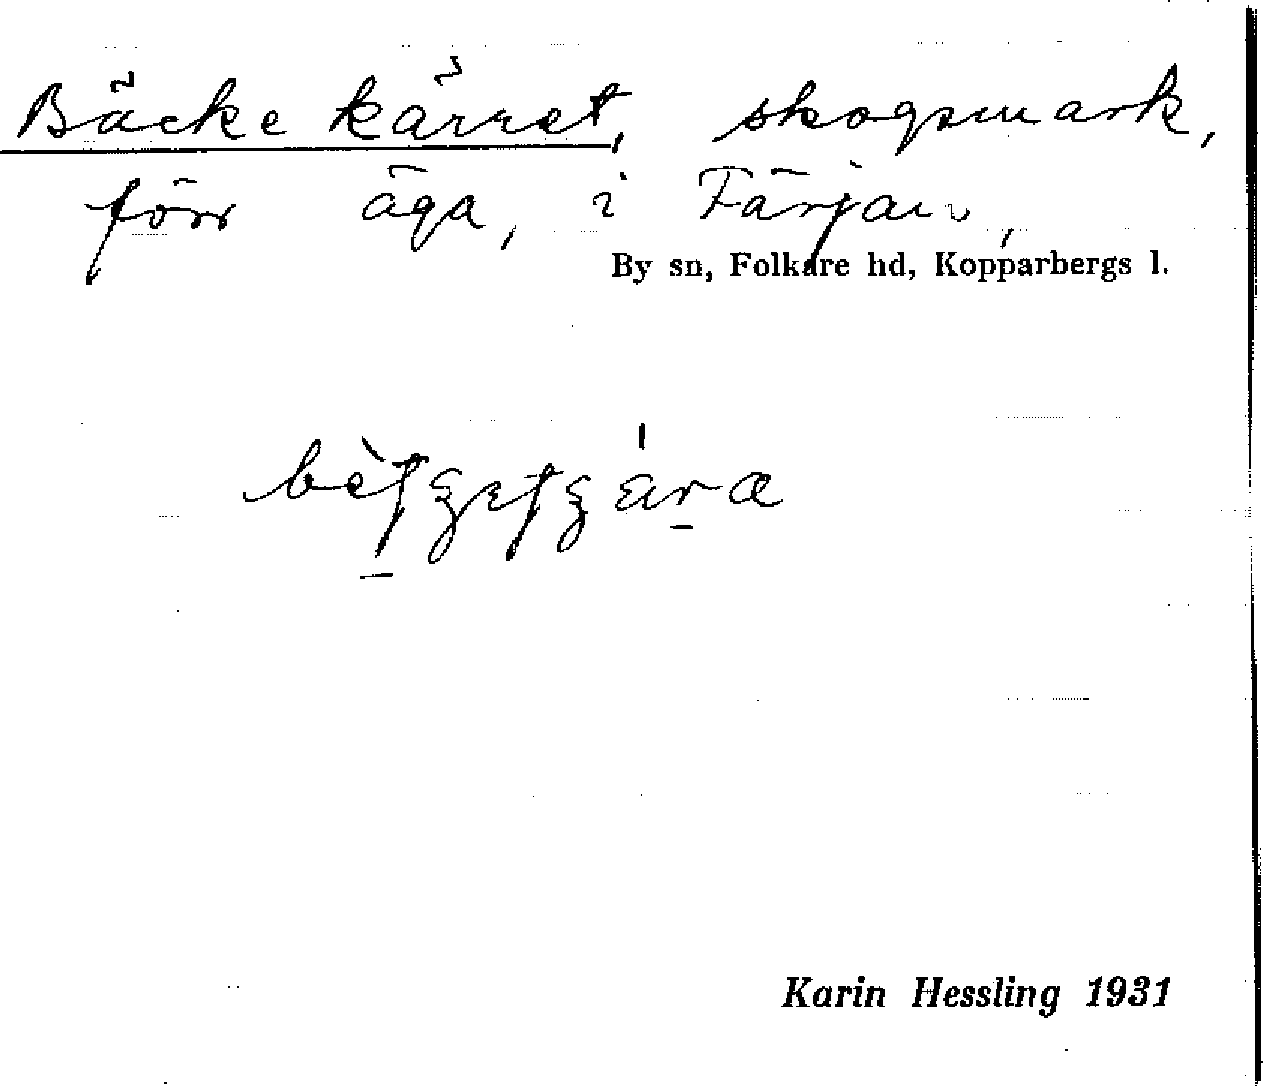 Bäckekärret, skogsmark,
förr äga, i Färjan,
By sn, Folkare hd, Kopparbergs l.
Karin Hessling 1931